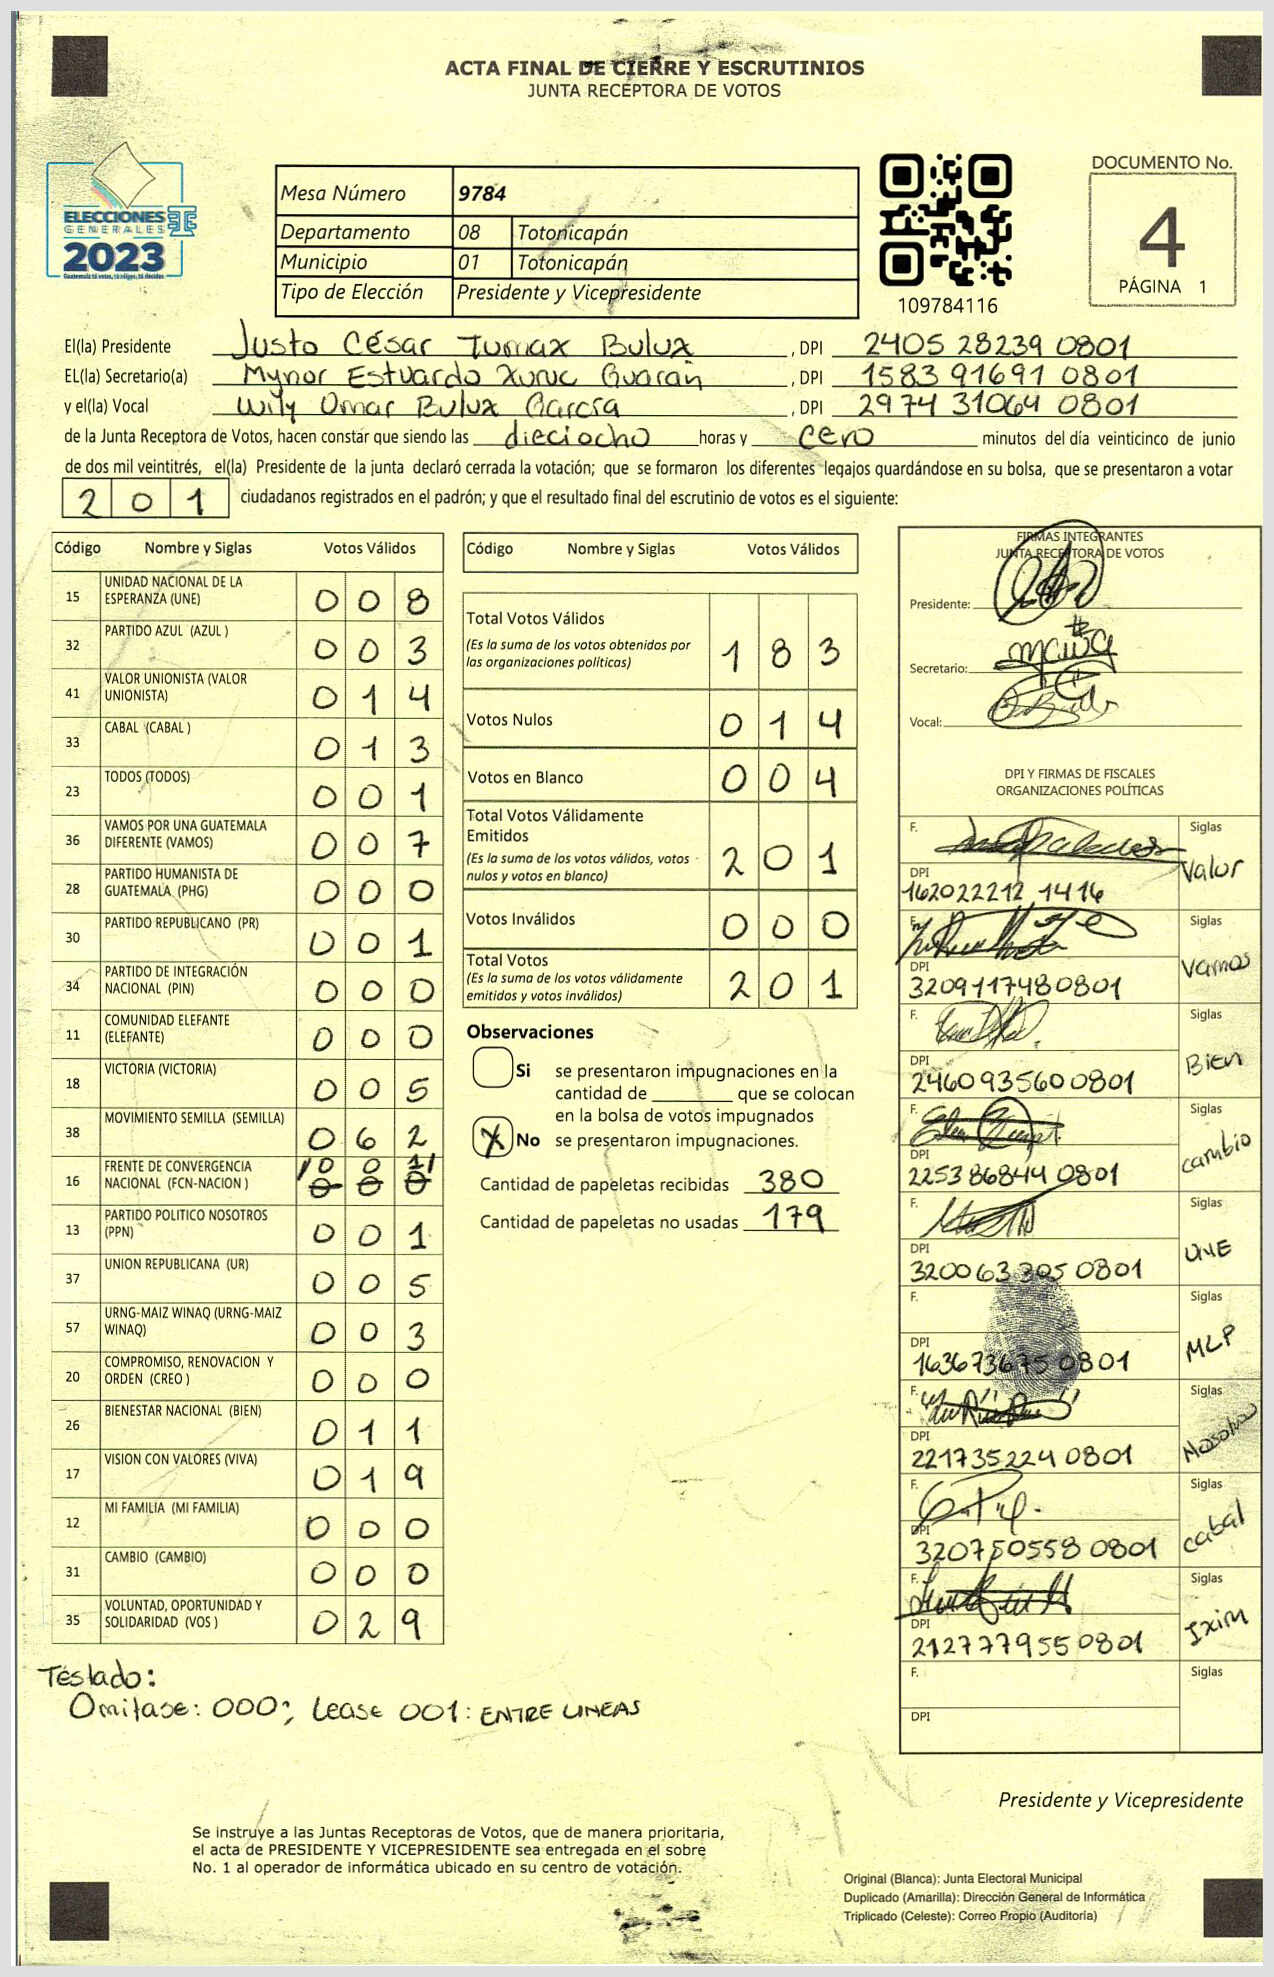 ACTA FINAL DE CIERRE Y ESCRUTINIOS
JUNTA RECEPTORA DE VOTOS
ELECCIONES
GENERALES
2023
Mesa Número 9784
Departamento 08 Totonicapán
Municipio 01 Totonicapán
Tipo de Elección Presidente y Vicepresidente
109784116
DOCUMENTO No.
4
PÁGINA 1
El(la) Presidente Justo César Tumax Bulux, DPI 2405 28239 0801
EL(la) Secretario(a) Mynor Estuardo Xuruc Guarán, DPI 1583 91691 0801
y el(la) Vocal Wily Omar Bulux García, DPI 2974 31064 0801
de la Junta Receptora de Votos, hacen constar que siendo las dieciocho horas y cero minutos del día veinticinco de junio
de dos mil veintitrés, el(la) Presidente de la junta declaró cerrada la votación; que se formaron los diferentes legajos guardándose en su bolsa, que se presentaron a votar
201 ciudadanos registrados en el padrón; y que el resultado final del escrutinio de votos es el siguiente:
Código Nombre y Siglas Votos Válidos
15 UNIDAD NACIONAL DE LA
ESPERANZA (UNE) 008
32 PARTIDO AZUL (AZUL ) 003
41 VALOR UNIONISTA (VALOR
UNIONISTA) 014
33 CABAL (CABAL ) 013
23 TODOS (TODOS) 001
36 VAMOS POR UNA GUATEMALA
DIFERENTE (VAMOS) 007
28 PARTIDO HUMANISTA DE
GUATEMALA (PHG) 000
30 PARTIDO REPUBLICANO (PR) 001
34 PARTIDO DE INTEGRACIÓN
NACIONAL (PIN) 000
11 COMUNIDAD ELEFANTE
(ELEFANTE) 000
18 VICTORIA (VICTORIA) 005
38 MOVIMIENTO SEMILLA (SEMILLA) 062
16 FRENTE DE CONVERGENCIA "001"
NACIONAL (FCN-NACION ) 000
13 PARTIDO POLITICO NOSOTROS
(PPN) 001
37 UNION REPUBLICANA (UR) 005
57 URNG-MAIZ WINAQ (URNG-MAIZ
WINAQ) 003
20 COMPROMISO, RENOVACION Y
ORDEN (CREO ) 000
26 BIENESTAR NACIONAL (BIEN) 011
17 VISION CON VALORES (VIVA) 019
12 MI FAMILIA (MI FAMILIA) 000
31 CAMBIO (CAMBIO) 000
35 VOLUNTAD, OPORTUNIDAD Y
SOLIDARIDAD (VOS ) 029
Téstado:
Omitase: 000; Lease 001: ENTRE LINEAS
Código Nombre y Siglas Votos Válidos
Total Votos Válidos
(Es la suma de los votos obtenidos por
las organizaciones políticas) 183
Votos Nulos 014
Votos en Blanco 004
Total Votos Válidamente
Emitidos
(Es la suma de los votos válidos, votos
nulos y votos en blanco) 201
Votos Inválidos 000
Total Votos
(Es la suma de los votos válidamente
emitidos y votos inválidos) 201
Observaciones
Si se presentaron impugnaciones en la
cantidad de ________ que se colocan
en la bolsa de votos impugnados
X No se presentaron impugnaciones.
Cantidad de papeletas recibidas 380
Cantidad de papeletas no usadas 179
FIRMAS INTEGRANTES
JUNTA RECEPTORA DE VOTOS
Presidente:
Secretario:
Vocal:
DPI Y FIRMAS DE FISCALES
ORGANIZACIONES POLÍTICAS
F. Siglas
Valor
DPI
162022212 1416
F. Siglas
Vamos
DPI
3209117480801
F. Siglas
Bien
DPI
246093560 0801
F. Siglas
cambio
DPI
2253 86844 0801
F. Siglas
UNE
DPI
320063305 0801
F. Siglas
MLP
DPI
163673675 0801
F. Siglas
Nosotros
DPI
221735224 0801
F. Siglas
cabal
DPI
320750558 0801
F. Siglas
Ixim
DPI
212777955 0801
F. Siglas
DPI
Presidente y Vicepresidente
Se instruye a las Juntas Receptoras de Votos, que de manera prioritaria,
el acta de PRESIDENTE Y VICEPRESIDENTE sea entregada en el sobre
No. 1 al operador de informática ubicado en su centro de votación.
Original (Blanca): Junta Electoral Municipal
Duplicado (Amarilla): Dirección General de Informática
Triplicado (Celeste): Correo Propio (Auditoría)